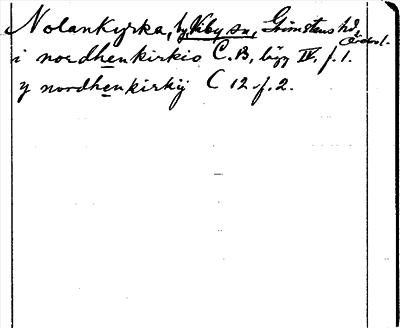 Nolankyrka, by, Viby sn, Grimstens hd.
i nordhenkirkio C. B, lägg IV. f. 1.
y nordhenkirkij C 12 f. 2.